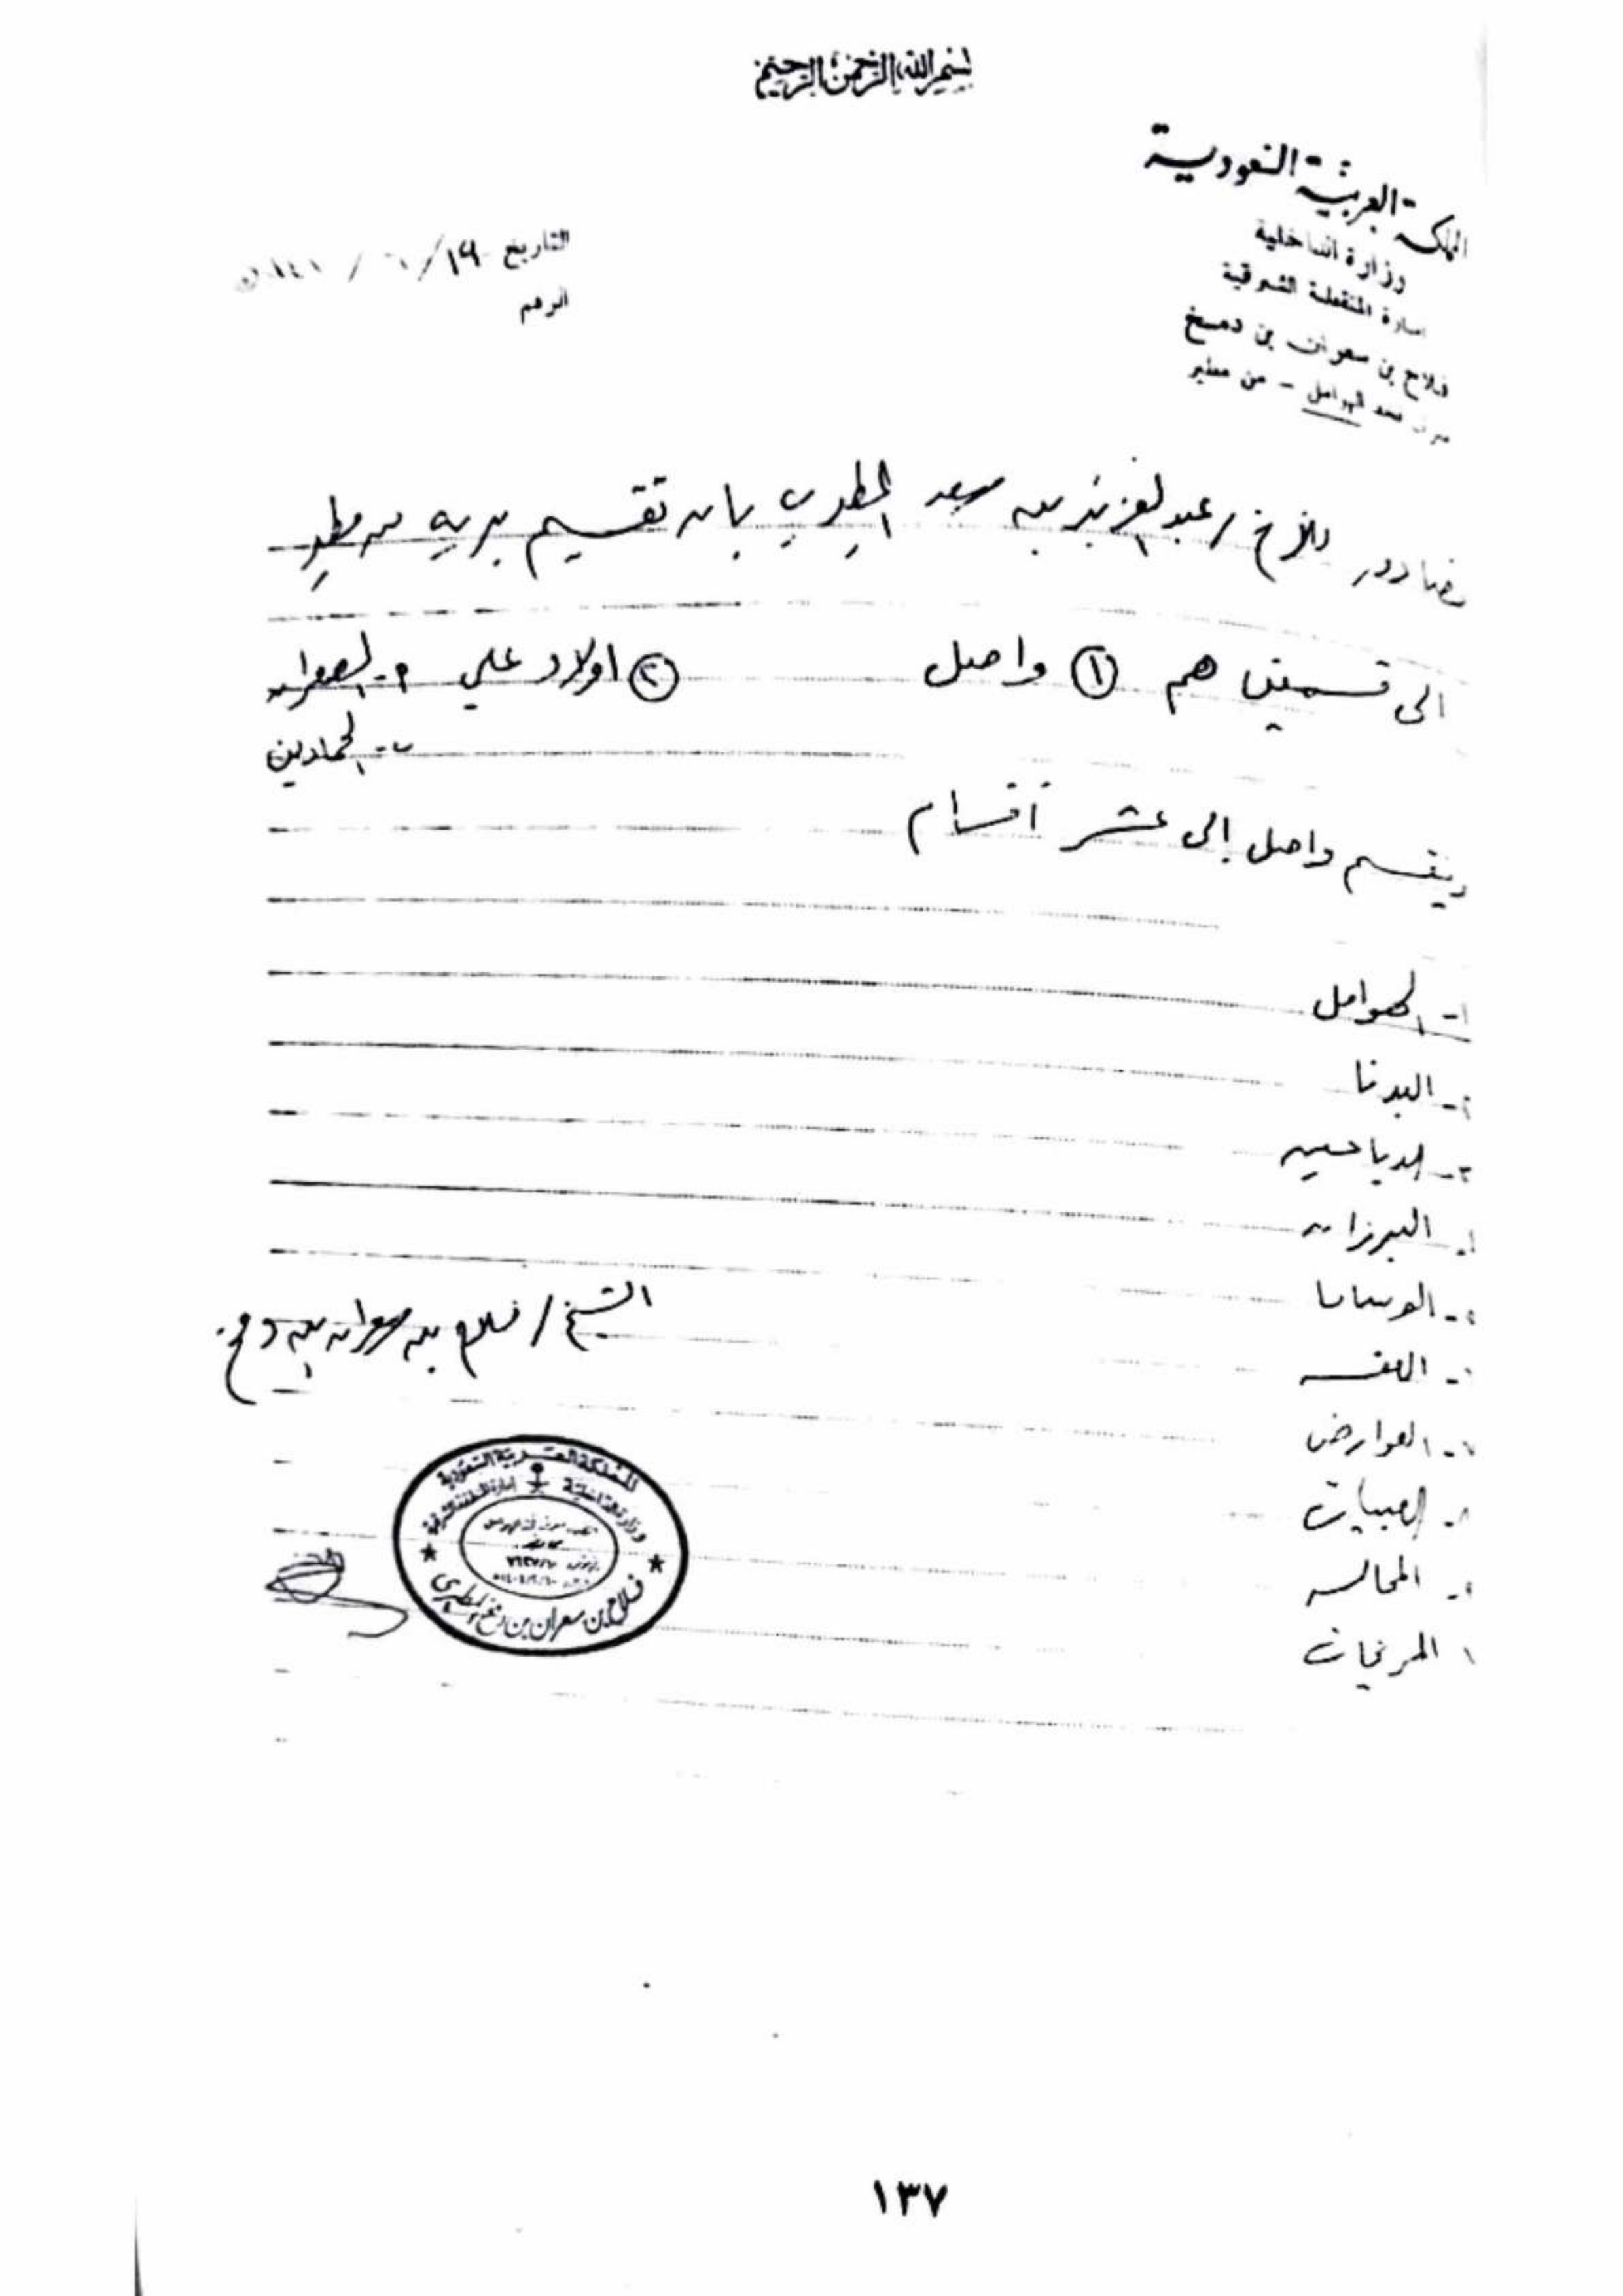 بسم الله الرحمن الرحيم
المملكة العربية السعودية
وزارة الداخلية
امارة المنطقة الشرقية
فلاح بن سعران بن دمخ
فخذ الهوامل - من مطير
التاريخ ١٩ / ٦ /
الرقم
للأخ / عبدالعزيز بن سعد المطيري بان تقسيم بريه من مطير
الى قسمين هم ① واصل ② اولاد علي ٩- الصعران
ب- الحمادين
ينقسم واصل إلى عشر أقسام
١- الهوامل
٢- البدنا
٣- الدياحين
البرزان
الوساما
٦- العفسه
٧- العوارض
٨- العبيات
المحالسه
المريخات
الشيخ / فلاح بن سعران بن دمخ
المملكة العربية السعودية
وزارة الداخلية إمارة المنطقة الشرقية
فلاح بن سعران بن دمخ المطيري
١٣٧